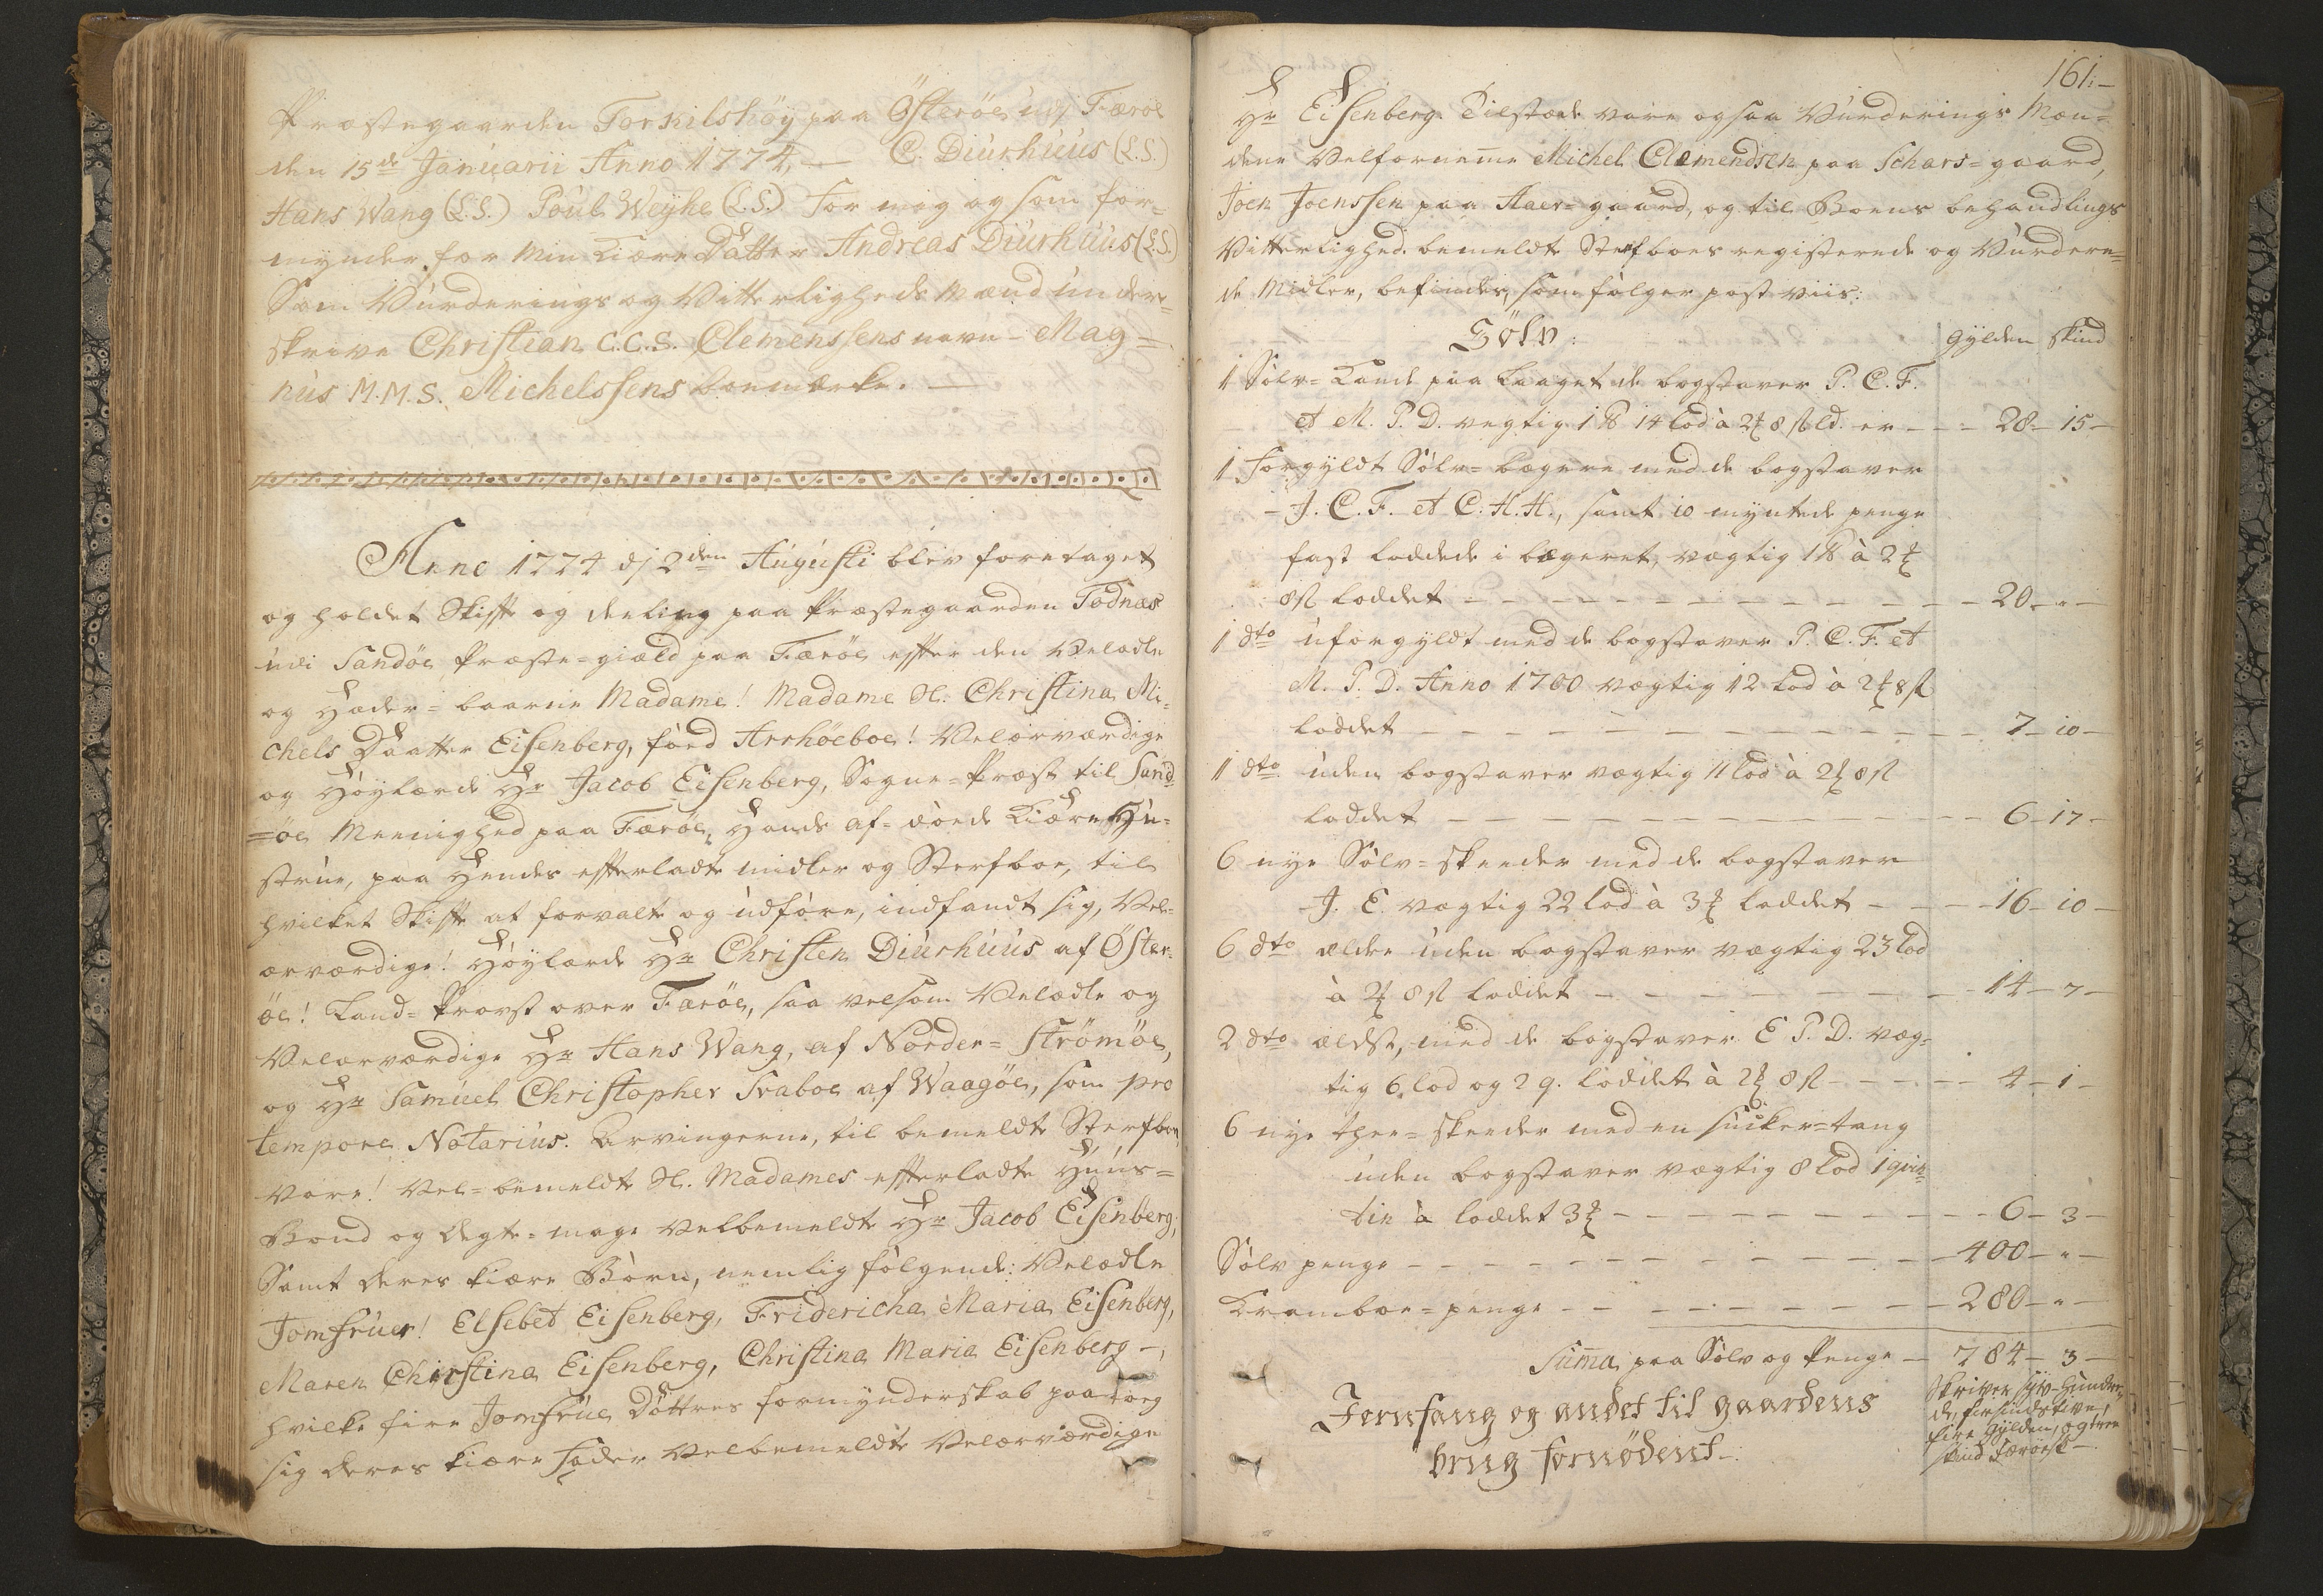 Præstegaarden Torkilshöÿ paa Österöe udj Færöe
den 15de Januarii Anno 1774. — C. Diurhuus (L.S.)
Hans Wang (L.S.) Poul Weÿhe (L.S.) For mig og som for-
mynder for min Kiære Datter Andreas Diurhuus (L.S.)
Som Vurderings og Vitterligheds Mænd under-
skrive Christian C.C.S. Clemenssens navn - Mag=
nus M.M.S. Michelssens boemærke. —
Anno 1774 dj 2den Augusti blev foretaget
og holdet Skifte og deeling paa Præstegaarden Todnæs
udi Sandöe Præste=giæld paa Færöe efter den Velædle
og Hæder=baarne Madame! Madame Sl. Christina Mi=
chels Daatter Eisenberg, föed Arrhöeboe! Velærværdige
og Höylærde Hr Jacob Eisenberg, Sogne=Præst til Sand=
=öe Meenighed paa Færöe, Hands af=döede Kiære Hu=
strue, paa Hendes efterladte midler og Sterfboe, til
hvilket Skifte at forvalte og udföre, indfandt sig, Vel=
ærværdige! Höylærde Hr Christen Diurhuus af Öster=
öe! Land=Provst over Færöe, saa velsom Velædle og
Velærværdige Hr Hans Wang, af Norder=Strömöe,
og Hr Samuel Christopher Svaboe af Waagöe, som pro
tempore Notarius. Arvingerne, til bemeldte Sterfboe,
vare! Vel=bemeldte Sl. Madames efterladte Huus=
Bond og Ægte=mage Velbemeldte Hr Jacob Eisenberg;
Samt deres kiære Börn, nemlig fölgende: Velædle
Jomfruer! Elsebet Eisenberg, Fridericha Maria Eisenberg,
Maren Christina Eisenberg, Christina Maria Eisenberg -,
hvilke fire Jomfrue Döttres formynderskab paatoeg
sig deres kiære Fader Velbemeldte Velærværdige
161.-
Hr Eisenberg. Tilstæde vare ogsaa Vurderings Mæn=
dene Velfornemme Michel Clemendsen paa Schars=gaard,
Joen Joenssen paa Haer=gaard, og til Boens behandlings
Vitterlighed. bemeldte Sterfboes registerede og Vurdere=
de Midler, befindes, som fölger post viis:
Sölv: gylden skind
1 Sölv=Kande paa Laaget de bogstaver P. C. F.
et M. P. D. vegtig 1 ℔ 14 lod à 2 ℳ 8 ß ld. er - - - 28 - 15 -
1 Forgyldt Sölv=bægere med de bogstaver
- J. C. F. et C. H. H., samt 10 myntede penge
fast loddede i bægeret, vægtig 1 ℔ à 2 ℳ
8 ß loddet - - - 20 - " -
1 dto uforgyldt med de bogstaver P. C. F. et
M. P. D. Anno 1700 vægtig 12 lod à 2 ℳ 8 ß
loddet - - - 7 - 10 -
1 dto uden bogstaver vægtig 11 lod à 2 ℳ 8 ß
loddet - - - 6 - 17 -
6 nye Sölv=skeeder med de bogstaver
J. E. vægtig 22 lod à 3 ℳ loddet - - - 16 - 10 -
6 dto ældre uden bogstaver vægtig 23 lod
à 2 ℳ 8 ß loddet - - - 14 - 7 -
2 dto ældst, med de bogstaver E P. D. væg=
tig 6 lod og 2 q. loddet à 2 ℳ 8 ß - - - 4 - 1 -
6 nye thee=skeeder med en sucker=tang
uden bogstaver vægtig 8 lod 1 qvin=
tin à loddet 3 ℳ - - - 6 - 3 -
Sölv penge - - - 400 - " -
Kramboe=penge - - - 280 - " -
Summa paa Sölv og Penge - 784 - 3 -
Skriver syv-hundre=
de, firsindstive,
fire gylden, og tree
skind Færöesk -.
Jernfang og andet til gaardens
brug fornödent -.